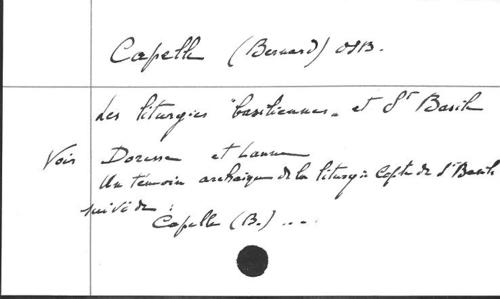 Capelle (Bernard) OSB.
Les liturgies "basiliennes" et St Basile
Voir Doresse et Lanne
Un témoin archaïque de la liturgie Copte de St Basile
suivi de :
Capelle (B.) ...